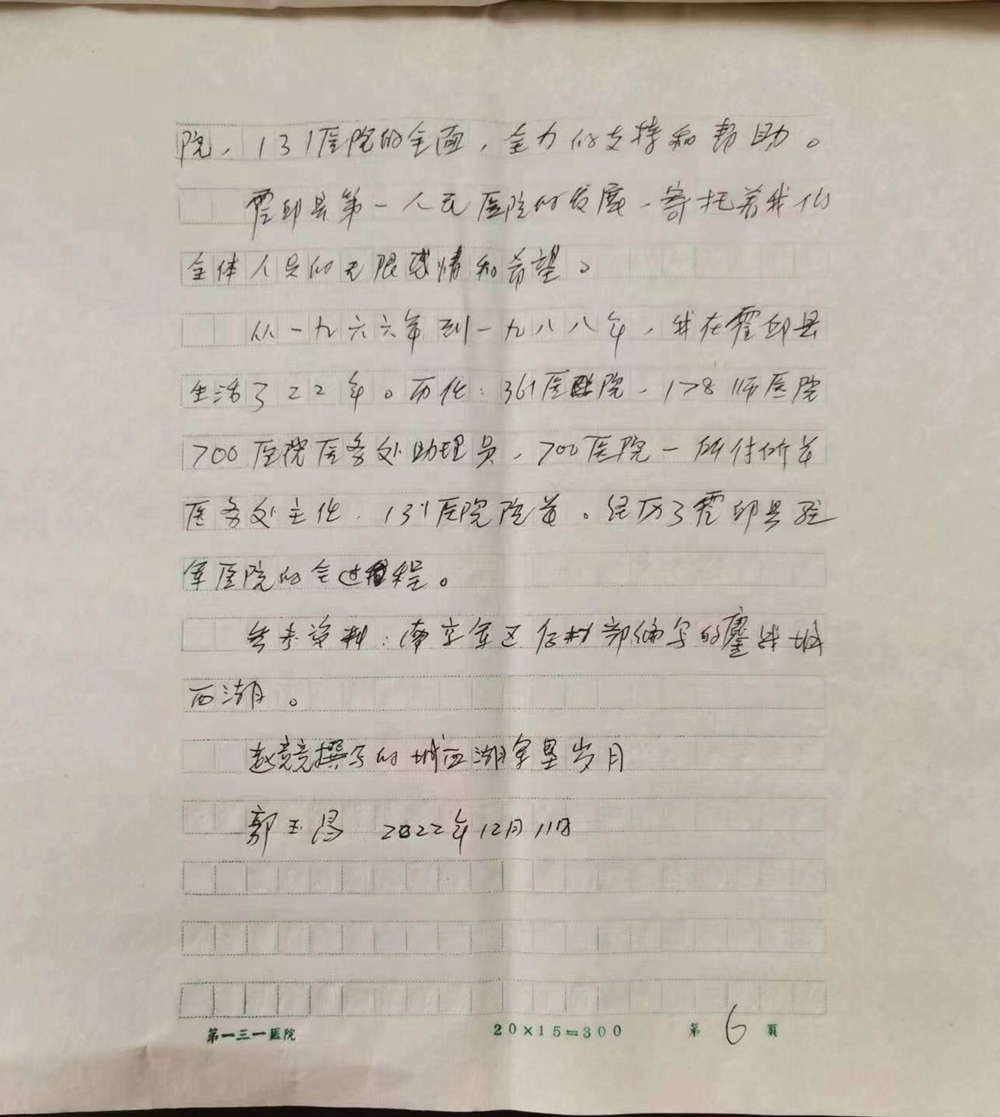 院、131医院的全面、全力的支持和帮助。
霍邱县第一人民医院的发展、寄托着我们
全体人员的无限感情和希望。
从一九六六年到一九八八年，我在霍邱县
生活了22年。历任：361医院、178师医院
700医院医务处助理员、700医院一所付所长
医务处主任、131医院院长。经历了霍邱县驻
军医院的全过程。
参考资料：南京军区后勤部编写的鏖战城
西湖。
赵竞竞撰写的城西湖军垦岁月
郭玉昌 2022年12月11日
第一三一医院 20×15=300 第 6 頁